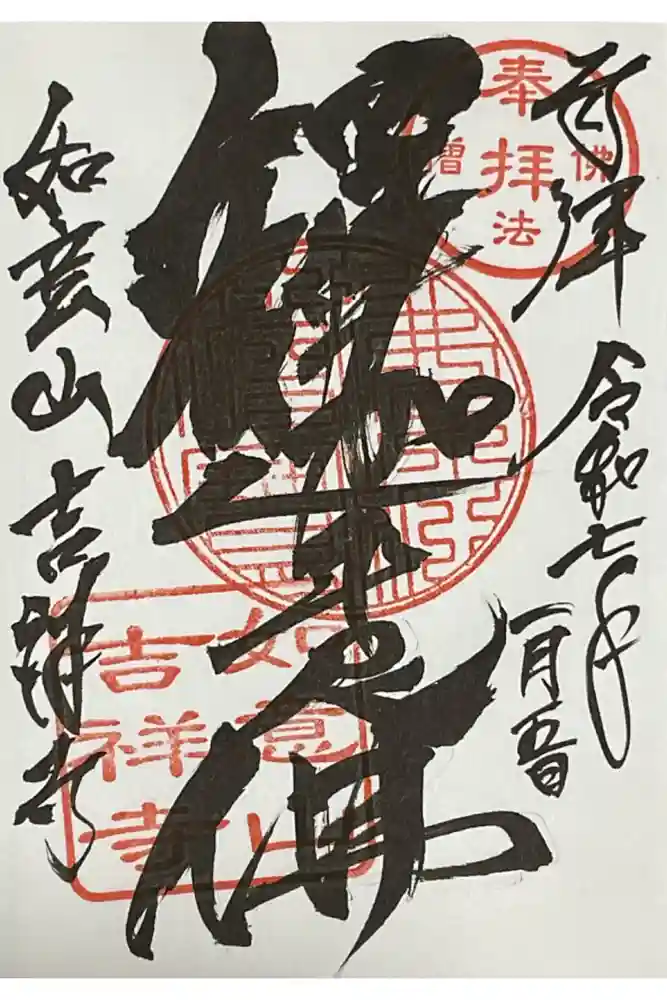 奉拝
佛法僧
令和七年
一月五日
釋迦牟尼佛
如意山 吉祥寺
如意山
吉祥寺